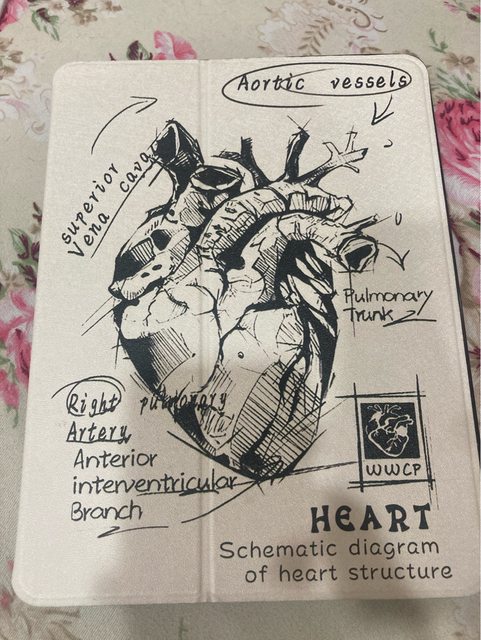 Aortic vessels
superior
Vena cava
Pulmonary
Trunk
Right pulmonary
Artery
Anterior
interventricular
Branch
WWCP
HEART
Schematic diagram
of heart structure